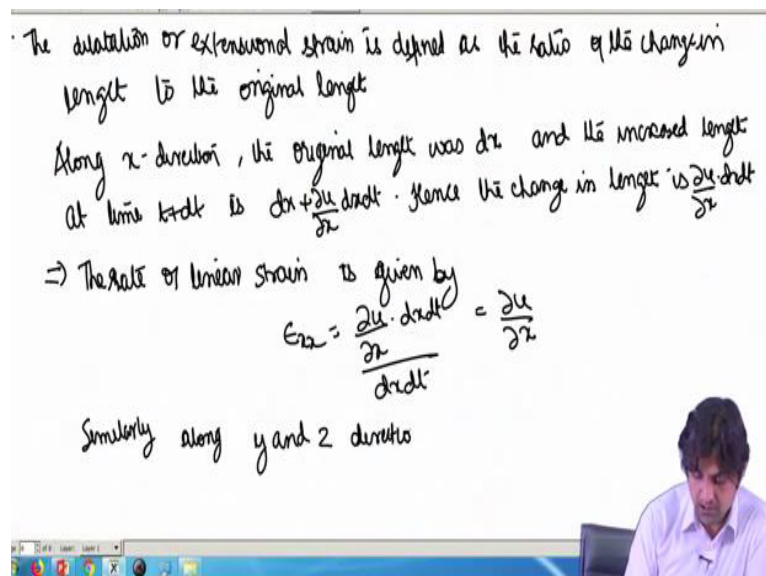 · The dilatation or extensional strain is defined as the ratio of the change in
length to the original length
Along x-direction, the original length was dx and the increased length
at time t+dt is dx + ∂u/∂x dxdt. Hence the change in length is ∂u/∂x · dxdt
⇒ The rate of linear strain is given by
ϵxx = (∂u/∂x · dxdt)/(dxdt) = ∂u/∂x
Similarly along y and z directio